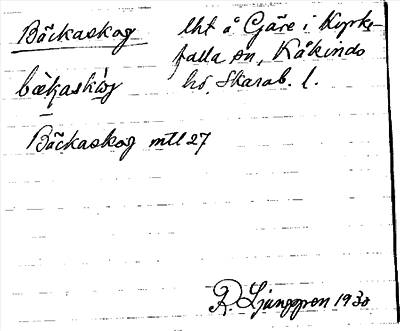 Bäckaskog lht å Gäre i Kyrke-
falla sn, Kåkinds
hd, Skarab. l.
bækaskog
Bäckaskog mtl 27
R. Ljunggren 1930